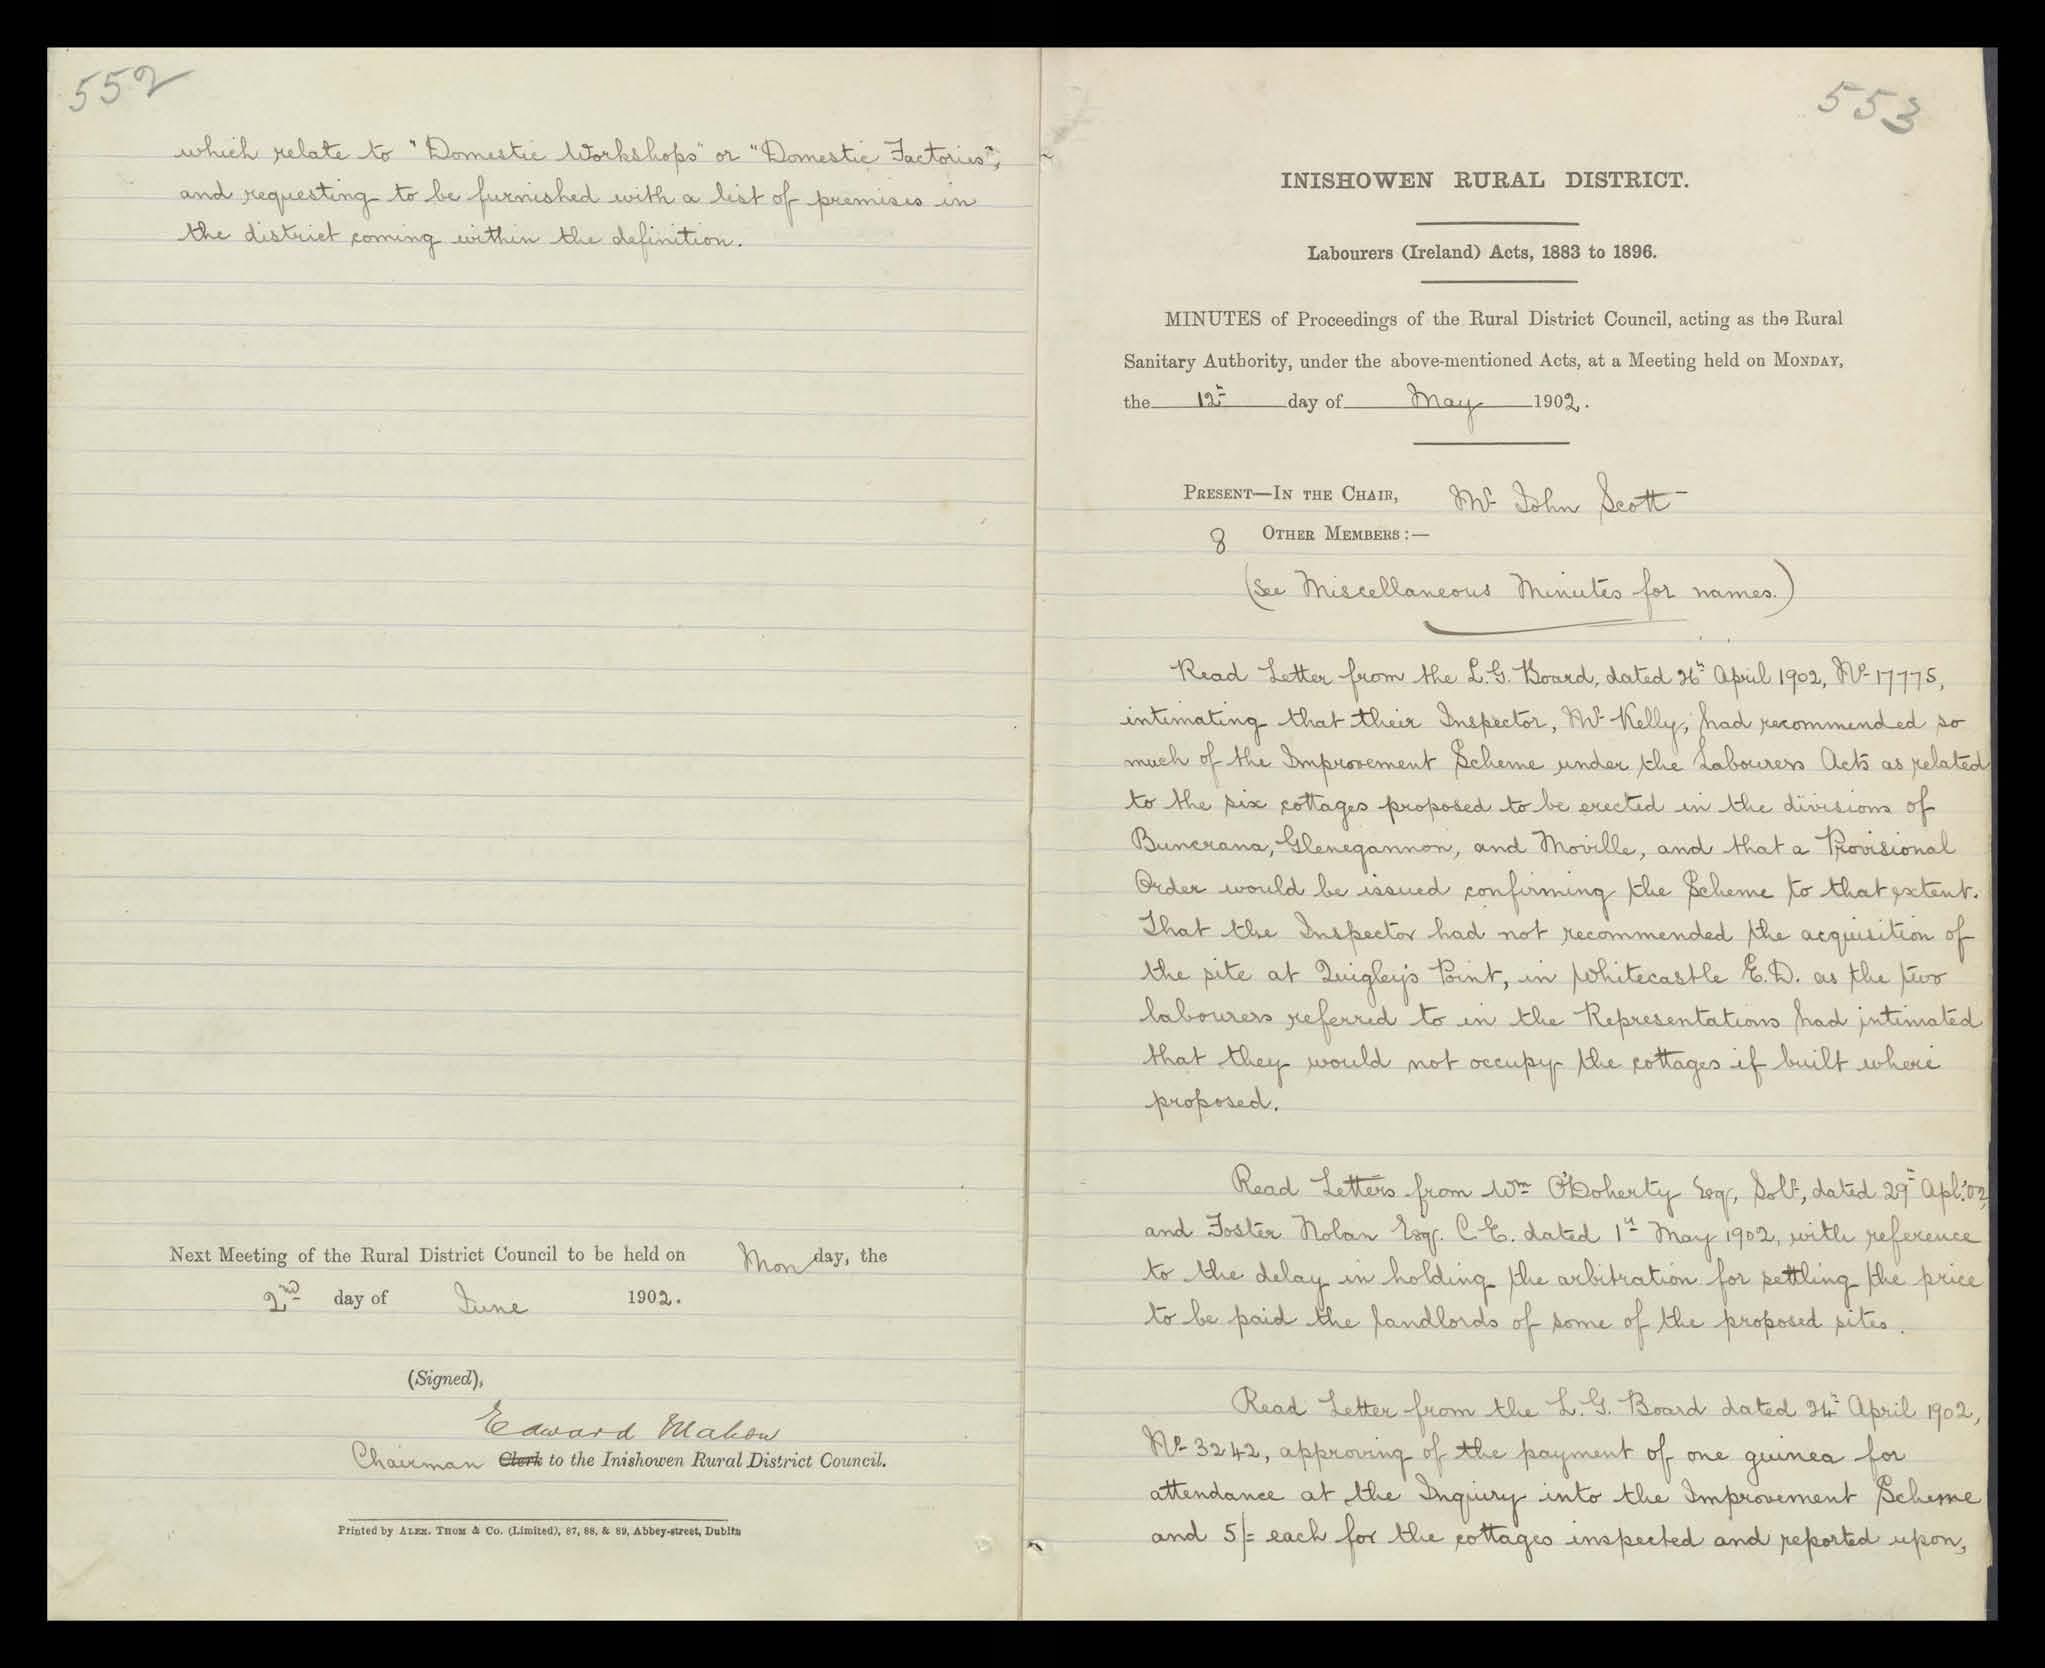 552
which relate to "Domestic Workshops" or "Domestic Factories",
and requesting to be furnished with a list of premises in
the district coming within the definition.
Next Meeting of the Rural District Council to be held on Monday, the
2nd day of June 1902.
(Signed),
Edward Mahon
Chairman Clerk to the Inishowen Rural District Council.
Printed by ALEX. THOM & Co. (Limited), 87, 88, & 89, Abbey-street, Dublin
553
INISHOWEN RURAL DISTRICT.
Labourers (Ireland) Acts, 1883 to 1896.
MINUTES of Proceedings of the Rural District Council, acting as the Rural
Sanitary Authority, under the above-mentioned Acts, at a Meeting held on MONDAY,
the 12th day of May 1902.
PRESENT—IN THE CHAIR, Mr John Scott
8 OTHER MEMBERS:—
(See Miscellaneous Minutes for names.)
Read Letter from the L.G. Board, dated 26th April 1902, No 17775,
intimating that their Inspector, Mr Kelly, had recommended so
much of the Improvement Scheme under the Labourers Acts as related
to the six cottages proposed to be erected in the divisions of
Buncrana, Glenegannon, and Moville, and that a Provisional
Order would be issued confirming the Scheme to that extent.
That the Inspector had not recommended the acquisition of
the site at Quigley's Point, in Whitecastle E.D. as the two
labourers referred to in the Representations had intimated
that they would not occupy the cottages if built where
proposed.
Read Letters from Wm O'Doherty Esq, Solr, dated 29th Apl. '02,
and Foster Nolan Esq. C.E. dated 1st May 1902, with reference
to the delay in holding the arbitration for settling the price
to be paid the landlords of some of the proposed sites.
Read Letter from the L.G. Board dated 24th April 1902,
No 3242, approving of the payment of one guinea for
attendance at the Inquiry into the Improvement Scheme
and 5/= each for the cottages inspected and reported upon,